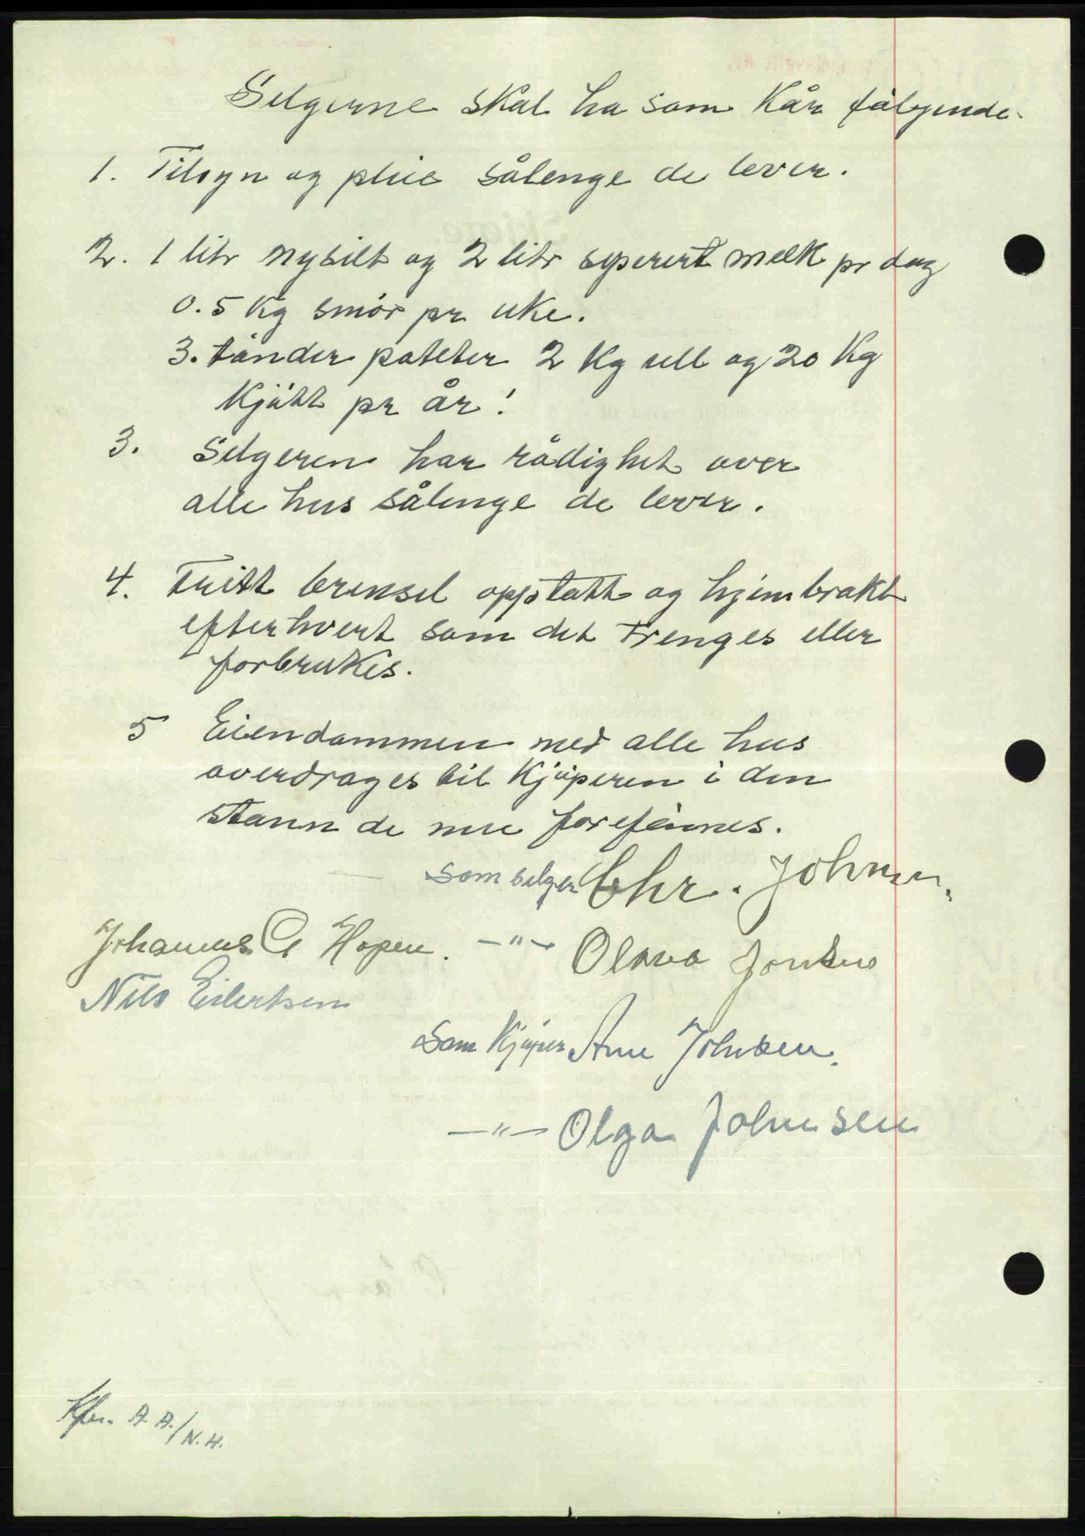 Selgerne skal ha som kår følgende.
1. Tilsyn og pleie sålenge de lever.
2. 1 litr nysilt og 2 litr seperert melk pr dag
0.5 kg smør pr uke.
3. tønder poteter 2 kg ull og 20 kg
kjøtt pr år!
3. Selgeren har rådighet over
alle hus sålenge de lever.
4. Fritt brensel opptatt og hjembrakt
efterhvert som det trenges eller
forbrukes.
5 Eiendommen med alle hus
overdrages til kjøperen i den
stann de nu forefinnes.
som selger Chr. Johnsen.
Johannes A Hopen. —"— Olava Jonsen
Nils Eilertsen
Som kjøper Arne Johnsen.
—"— Olga Johnsen
Kfr. A A./N.H.